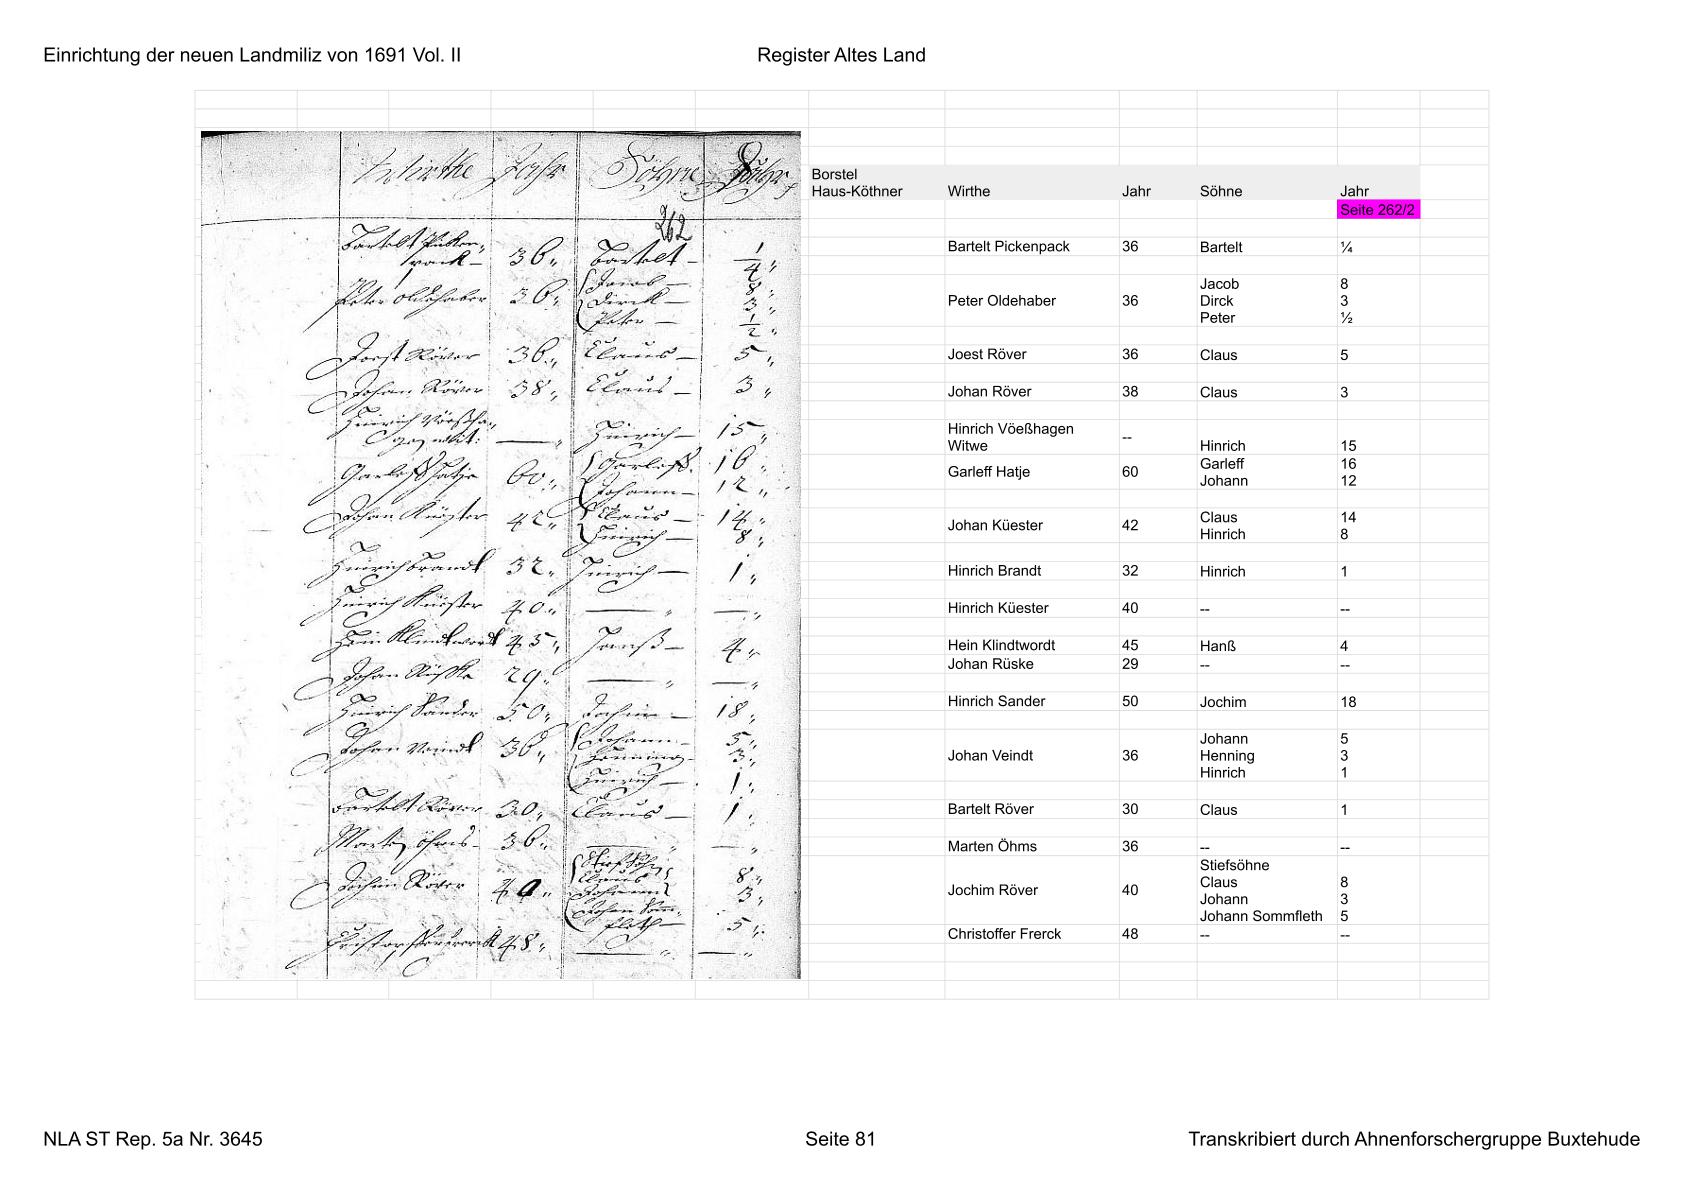 Einrichtung der neuen Landmiliz von 1691 Vol. II
Register Altes Land
Wirthe Jahr Söhne Jahr
262
Bartelt Picken-
pack 36 Bartelt 1/4
Peter Oldehaber 36 Jacob 8
Dirck 3
Peter 1/2
Joest Röver 36 Claus 5
Johan Röver 38 Claus 3
Hinrich Vöeßha-
gen Hinrich 15
Garleff Hatje 60 Garleff 16
Johann 12
Johan Küester 42 Claus 14
Hinrich 8
Hinrich Brandt 32 Hinrich 1
Hinrich Küester 40
Hein Klindtwordt 45 Hanß 4
Johan Rüske 29
Hinrich Sander 50 Jochim 18
Johan Veindt 36 Johann 5
Henning 3
Hinrich 1
Bartelt Röver 30 Claus 1
Marten Öhms 36
Stiefsöhne
Jochim Röver 40 Claus 8
Johann 3
Johan Som-
fleth 5
Christoffer Frerck 48
Borstel
Haus-Köthner Wirthe Jahr Söhne Jahr
Seite 262/2
Bartelt Pickenpack 36 Bartelt ¼
Jacob 8
Peter Oldehaber 36 Dirck 3
Peter ½
Joest Röver 36 Claus 5
Johan Röver 38 Claus 3
Hinrich Vöeßhagen --
Witwe Hinrich 15
Garleff Hatje 60 Garleff 16
Johann 12
Johan Küester 42 Claus 14
Hinrich 8
Hinrich Brandt 32 Hinrich 1
Hinrich Küester 40 -- --
Hein Klindtwordt 45 Hanß 4
Johan Rüske 29 -- --
Hinrich Sander 50 Jochim 18
Johann 5
Johan Veindt 36 Henning 3
Hinrich 1
Bartelt Röver 30 Claus 1
Marten Öhms 36 -- --
Stiefsöhne
Jochim Röver 40 Claus 8
Johann 3
Johann Sommfleth 5
Christoffer Frerck 48 -- --
NLA ST Rep. 5a Nr. 3645
Seite 81
Transkribiert durch Ahnenforschergruppe Buxtehude